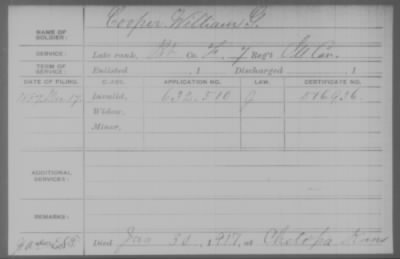 NAME OF SOLDIER: Cooper, William G.
SERVICE: Late rank, Co. F, 7 Reg't Cav.
TERM OF SERVICE: Enlisted , 1 Discharged , 1
DATE OF FILING. CLASS. APPLICATION NO. LAW. CERTIFICATE NO.
Invalid, 632.510 516936
Widow,
Minor,
ADDITIONAL SERVICES:
REMARKS:
Died Jan 30, 1917, at Chetopa Kans